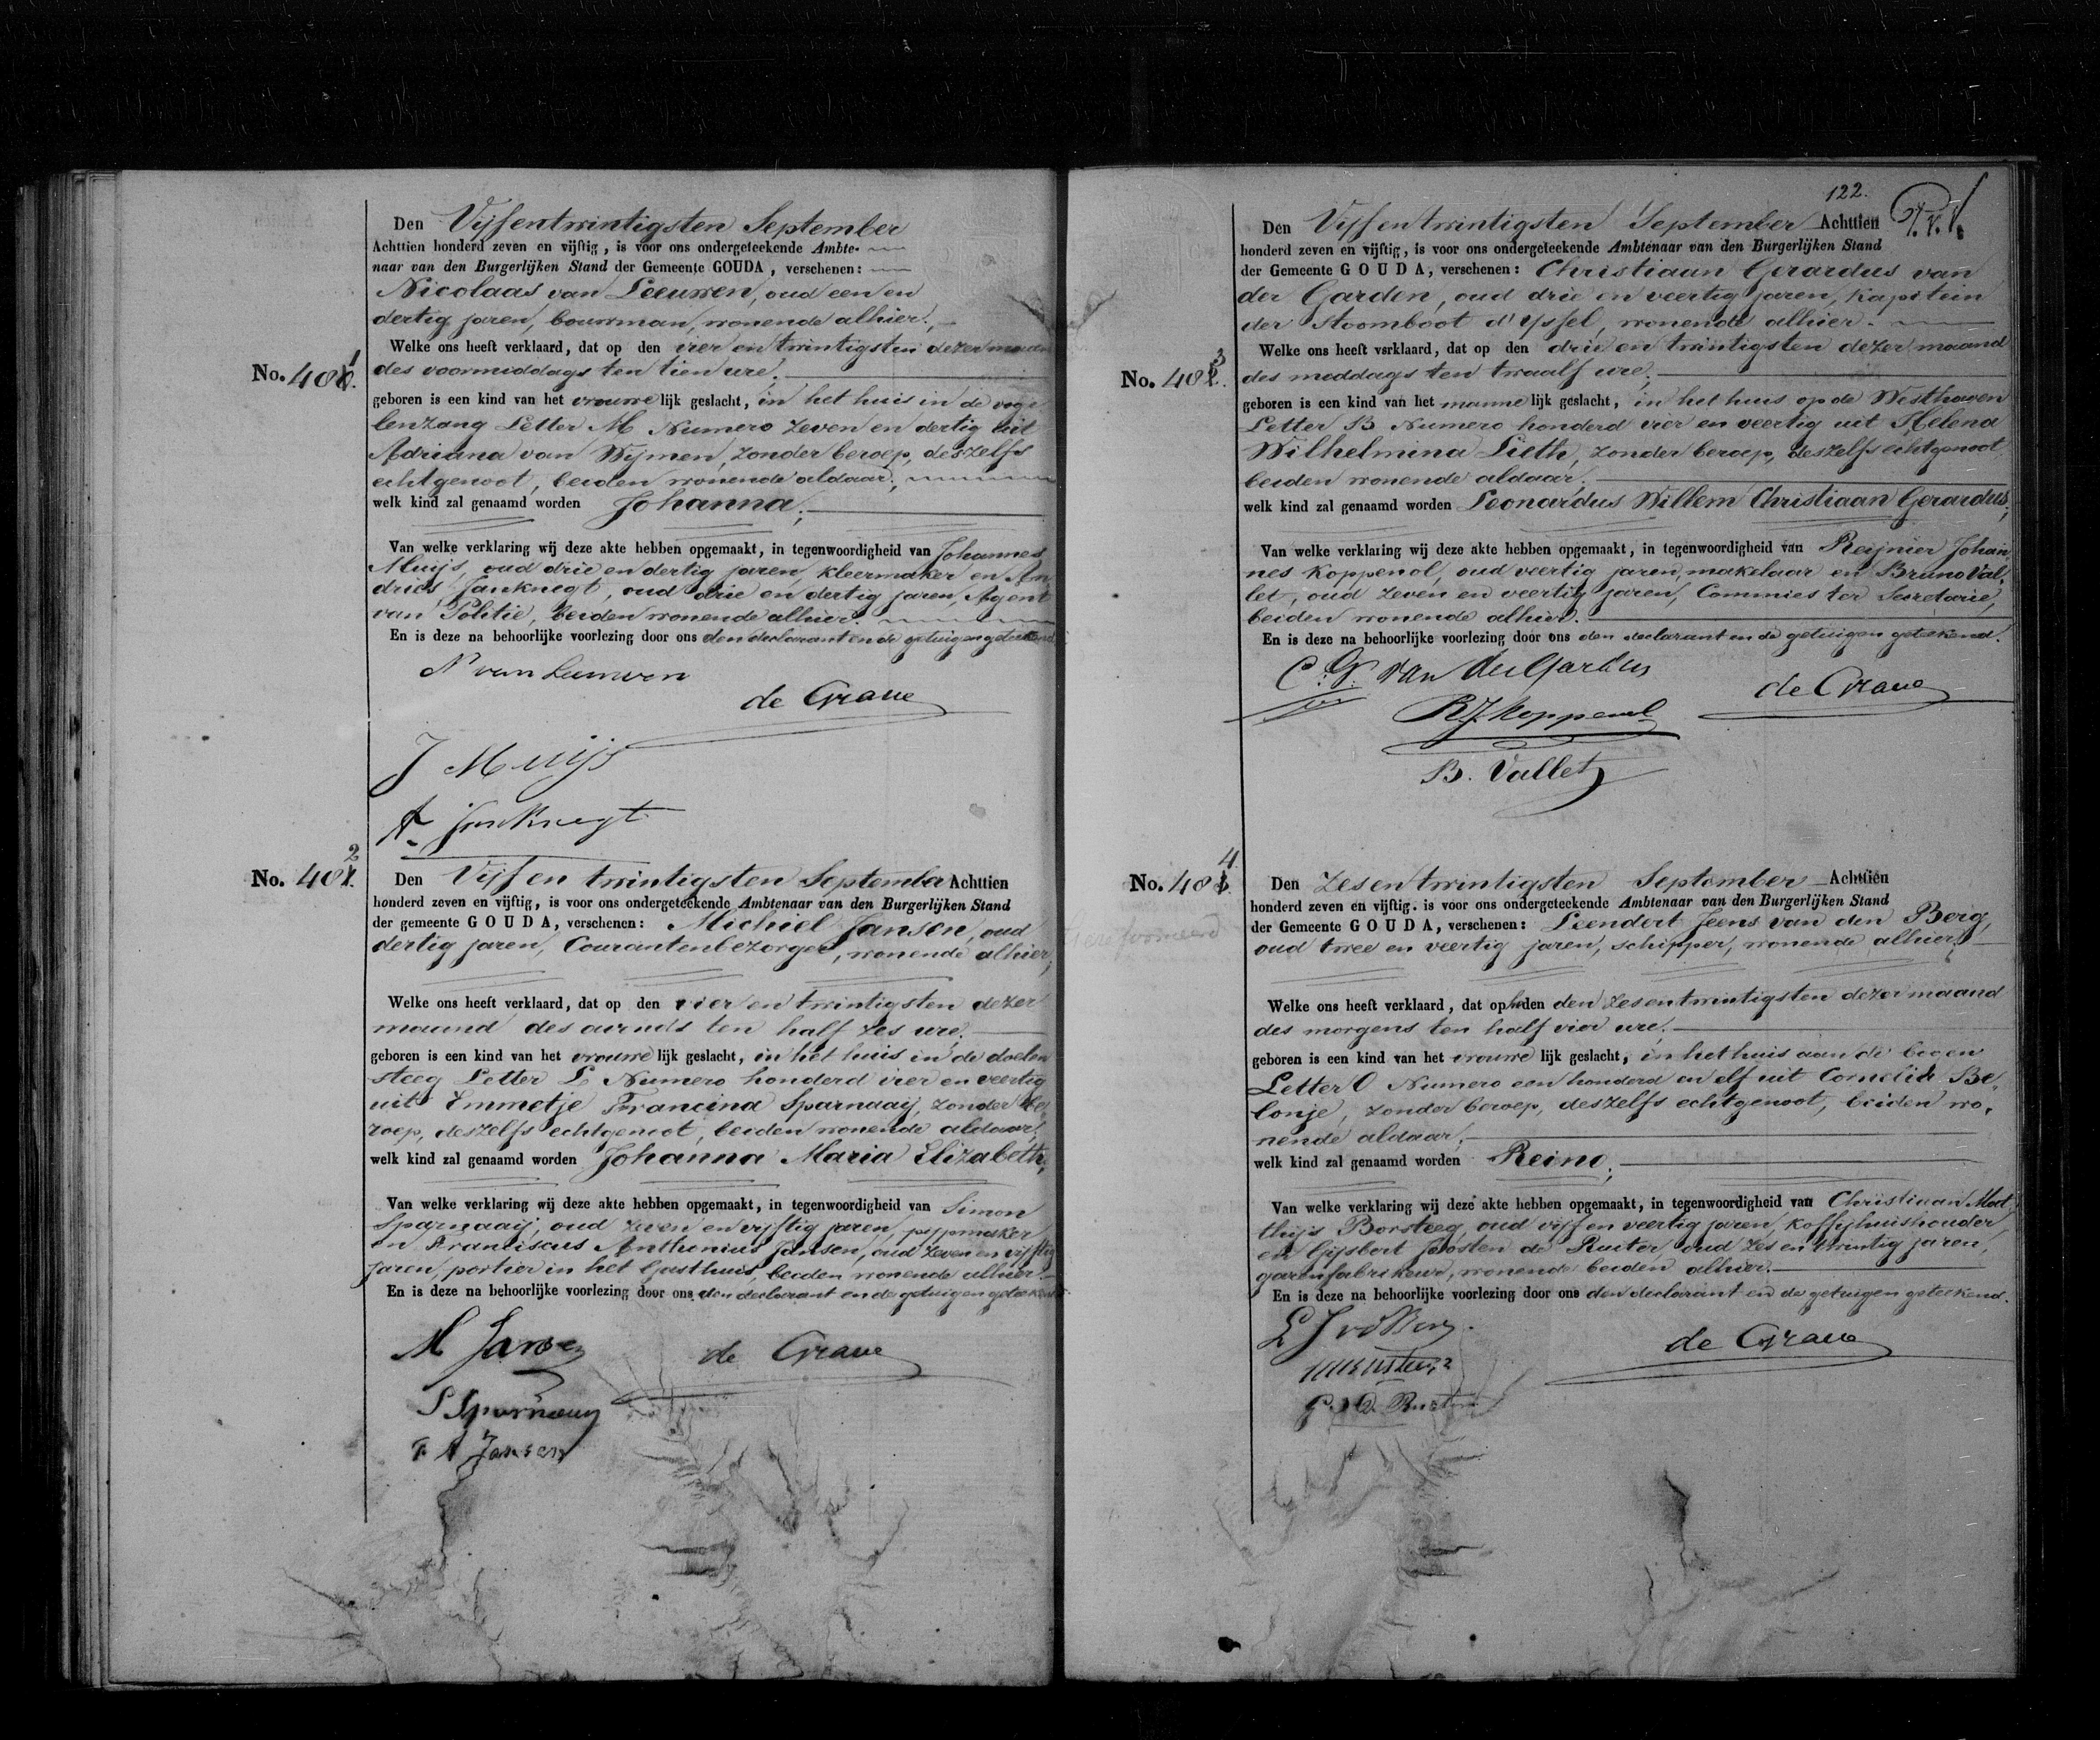 Den Vijfentwintigsten September
Achttien honderd zeven en vijftig, is voor ons ondergeteekende Ambte-
naar van den Burgerlijken Stand der Gemeente GOUDA, verschenen:
Nicolaas van Leeuwen, oud een en
dertig jaren, bouwman, wonende alhier.,
Welke ons heeft verklaard, dat op den vier en twintigsten dezer maand
No. 401.
des voormiddags ten tien ure,
geboren is een kind van het vrouwelijk geslacht, in het huis in de voge
lenzang Letter M Numero zeven en dertig uit
Adriana van Wijmen, zonder beroep, deszelfs
echtgenoot, beiden wonende aldaar,
welk kind zal genaamd worden Johanna;
Van welke verklaring wij deze akte hebben opgemaakt, in tegenwoordigheid van Johannes
Muijs, oud drie en dertig jaren, kleermaker en An
dries Janknegt, oud drie en dertig jaren, Agent
van Politie, beiden wonende alhier.
En is deze na behoorlijke voorlezing door ons den declarant en de getuigen geteekend
N van Leeuwen
de Grave
J Muijs
A Janknegt
No. 402.
Den Vijfen twintigsten September Achttien
honderd zeven en vijftig, is voor ons ondergeteekende Ambtenaar van den Burgerlijken Stand
der gemeente GOUDA, verschenen: Michiel Jansen, oud
dertig jaren, Courantenbezorger, wonende alhier,
Welke ons heeft verklaard, dat op den vier en twintigsten dezer
maand des avonds ten half zes ure,
geboren is een kind van het vrouwelijk geslacht, in het huis in de doelen
steeg Letter L Numero honderd vier en veertig
uit Emmetje Francina Sparnaaij, zonder be-
roep, deszelfs echtgenoot, beiden wonende aldaar,
welk kind zal genaamd worden Johanna Maria Elizabeth;
Van welke verklaring wij deze akte hebben opgemaakt, in tegenwoordigheid van Simon
Sparnaaij, oud zeven en vijftig jaren, pijpmaker
en Franciscus Anthonius Jansen, oud zeven en vijftig
jaren, portier in het Gasthuis, beiden wonende alhier.
En is deze na behoorlijke voorlezing door ons den declarant en de getuigen geteekend
M Jansen
de Grave
S Sparnaaij
F A Jansen
122.
Den Vijfentwintigsten September Achttien
honderd zeven en vijftig, is voor ons ondergeteekende Ambtenaar van den Burgerlijken Stand
der Gemeente GOUDA, verschenen: Christiaan Gerardus van
der Garden, oud drie en veertig jaren, Kapitein
der Stoomboot d'Yssel, wonende alhier.
Welke ons heeft vsrklaard, dat op den drie en twintigsten dezer maand
No. 403.
des middags ten twaalf ure,
geboren is een kind van het mannelijk geslacht, in het huis op de Westhaven
Letter B Numero honderd vier en veertig uit Helena
Wilhelmina Lieth, zonder beroep, deszelfs echtgenoot,
beiden wonende aldaar,
welk kind zal genaamd worden Leonardus Willem Christiaan Gerardus;
Van welke verklaring wij deze akte hebben opgemaakt, in tegenwoordigheid van Reijnier Johan
nes Koppenol, oud veertig jaren, makelaar en Bruno Val-
let, oud zeven en veertig jaren, Commies ter Secretarie,
beiden wonende alhier.
En is deze na behoorlijke voorlezing door ons den declarant en de getuigen geteekend.
C: G. van der Garden
de Grave
RJ Koppenol
B. Vallet
No. 404.
Den Zesentwintigsten September Achttien
honderd zeven en vijftig. is voor ons ondergeteekende Ambtenaar van den Burgerlijken Stand
der Gemeente GOUDA, verschenen: Leendert Jeens van den Berg,
oud twee en veertig jaren, schipper, wonende alhier,
Welke ons heeft verklaard, dat op heden den zesentwintigsten dezer maand
des morgens ten half vier ure,
geboren is een kind van het vrouwelijk geslacht, in het huis aan de
Letter O Numero een honderd en elf uit Cornelia Be-
lonje, zonder beroep, deszelfs echtgenoot, beiden wo-
nende aldaar,
welk kind zal genaamd worden Reino;
Van welke verklaring wij deze akte hebben opgemaakt, in tegenwoordigheid van Christiaan Mat
thijs Borsteeg, oud vijf en veertig jaren, koffijhuishouder
en Gijsbert Joosten de Ruiter, oud zes en twintig jaren,
garenfabrikeur, wonende beiden alhier.
En is deze na behoorlijke voorlezing door ons den declarant en de getuigen geteekend.
L J vd Berg.
de Grave
G. J D. Ruiter